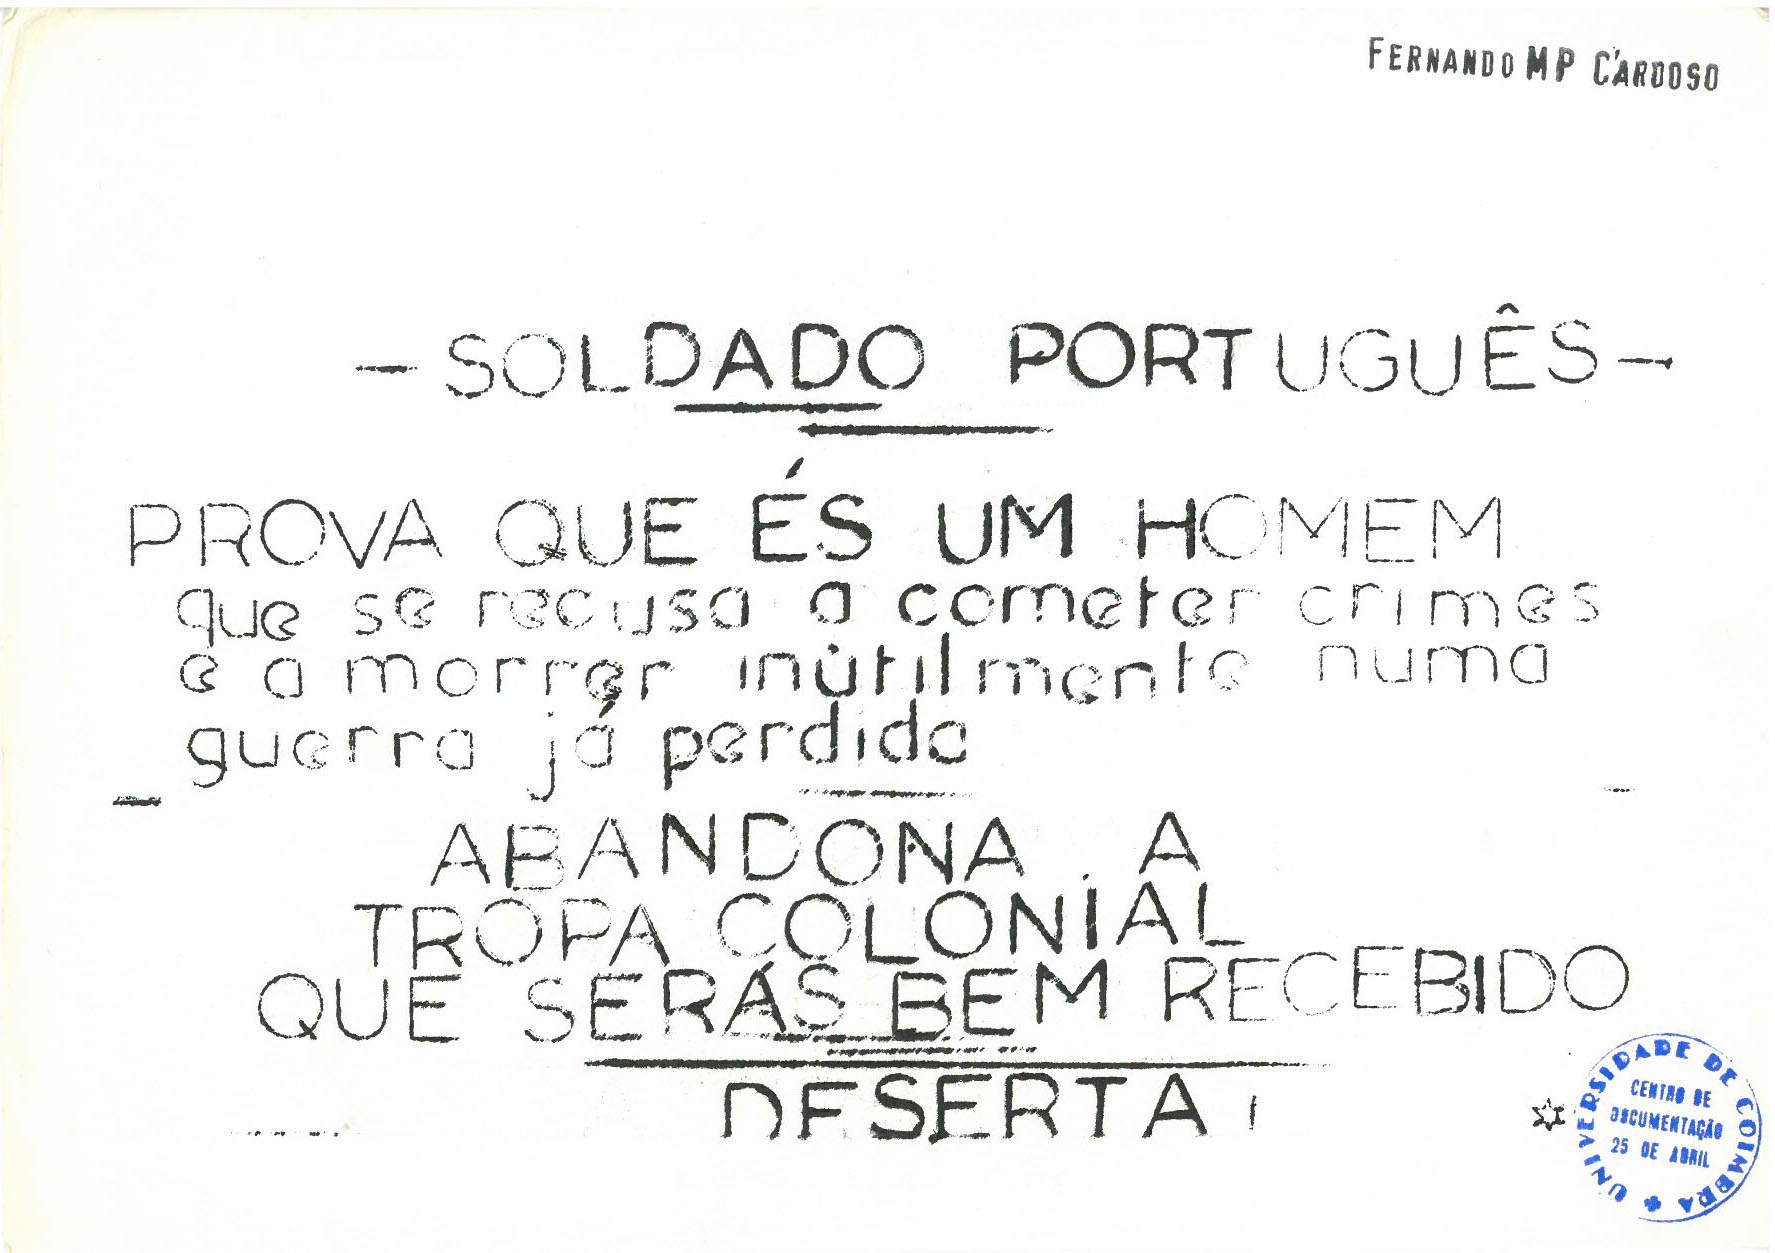 FERNANDO MP CARDOSO
— SOLDADO PORTUGUÊS —
PROVA QUE ÉS UM HOMEM
que se recusa a cometer crimes
e a morrer inùtilmente numa
guerra já perdida
ABANDONA A
TROPA COLONIAL
QUE SERÁS BEM RECEBIDO
DESERTA!
UNIVERSIDADE DE COIMBRA
CENTRO DE
DOCUMENTAÇÃO
25 DE ABRIL